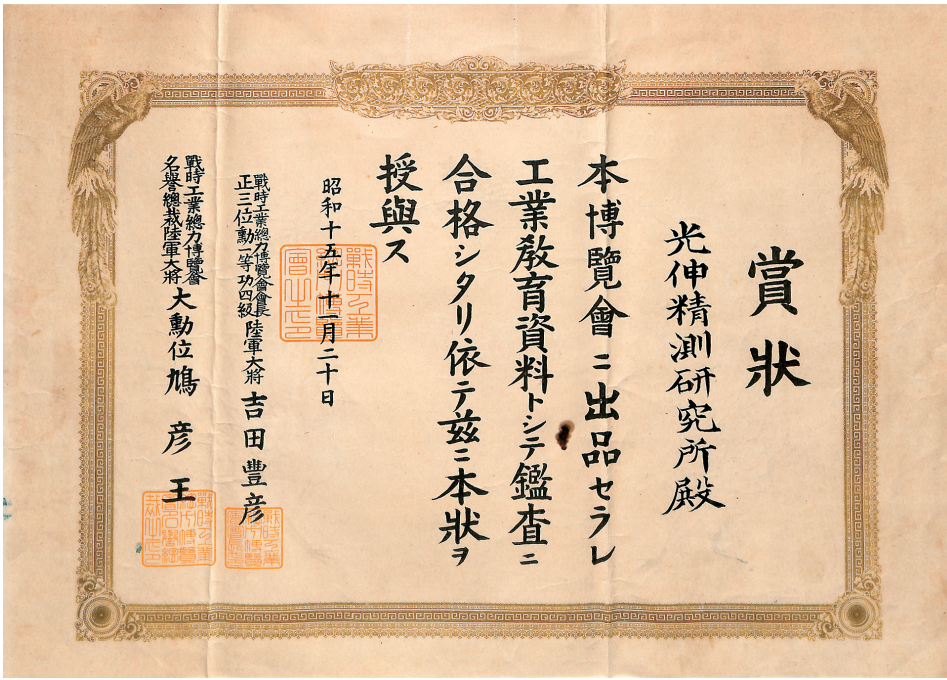 賞狀
光伸精測研究所殿
本博覽會ニ出品セラレ
工業教育資料トシテ鑑査ニ
合格シタリ依テ茲ニ本狀ヲ
授與ス
昭和十五年十一月二十日
戰時工業總力博覽会會長
正三位勳一等功四級陸軍大將吉田豐彦
戰時工業總力博覽會
名譽總裁陸軍大將大勳位鳩彦王